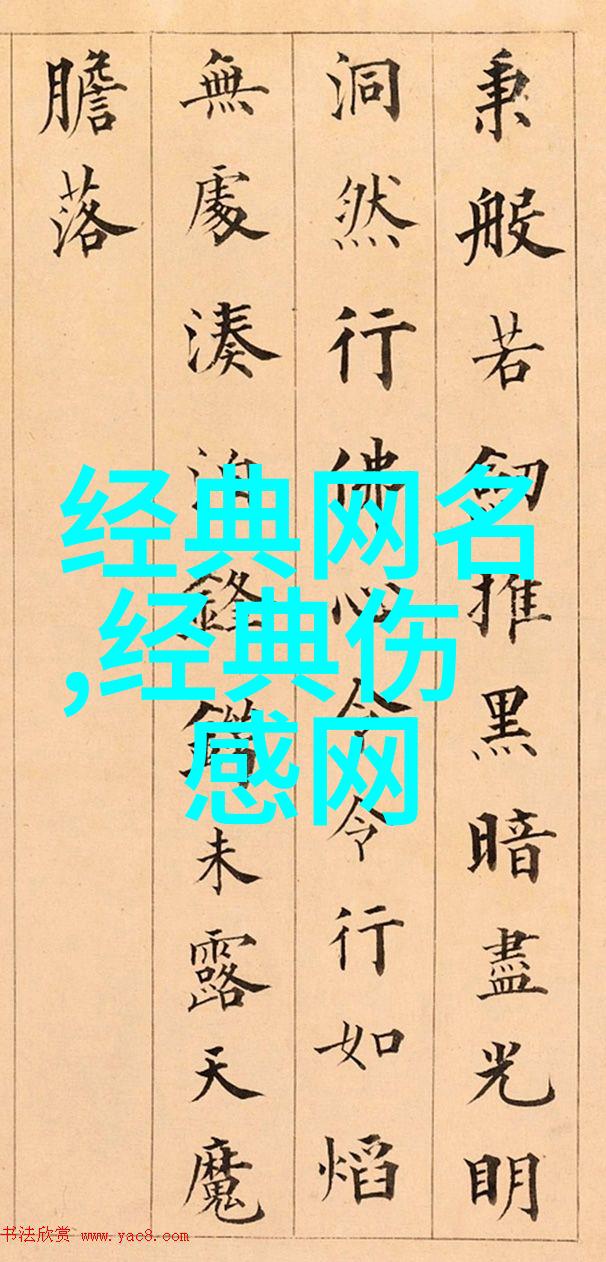 秉般若劒推黑暗盡光明
洞然行佛心令令行如熖
無處湊泊鋒鋩未露天魔
膽落
经典网名
,经典伤
感网
书法欣赏 www.yac8.com